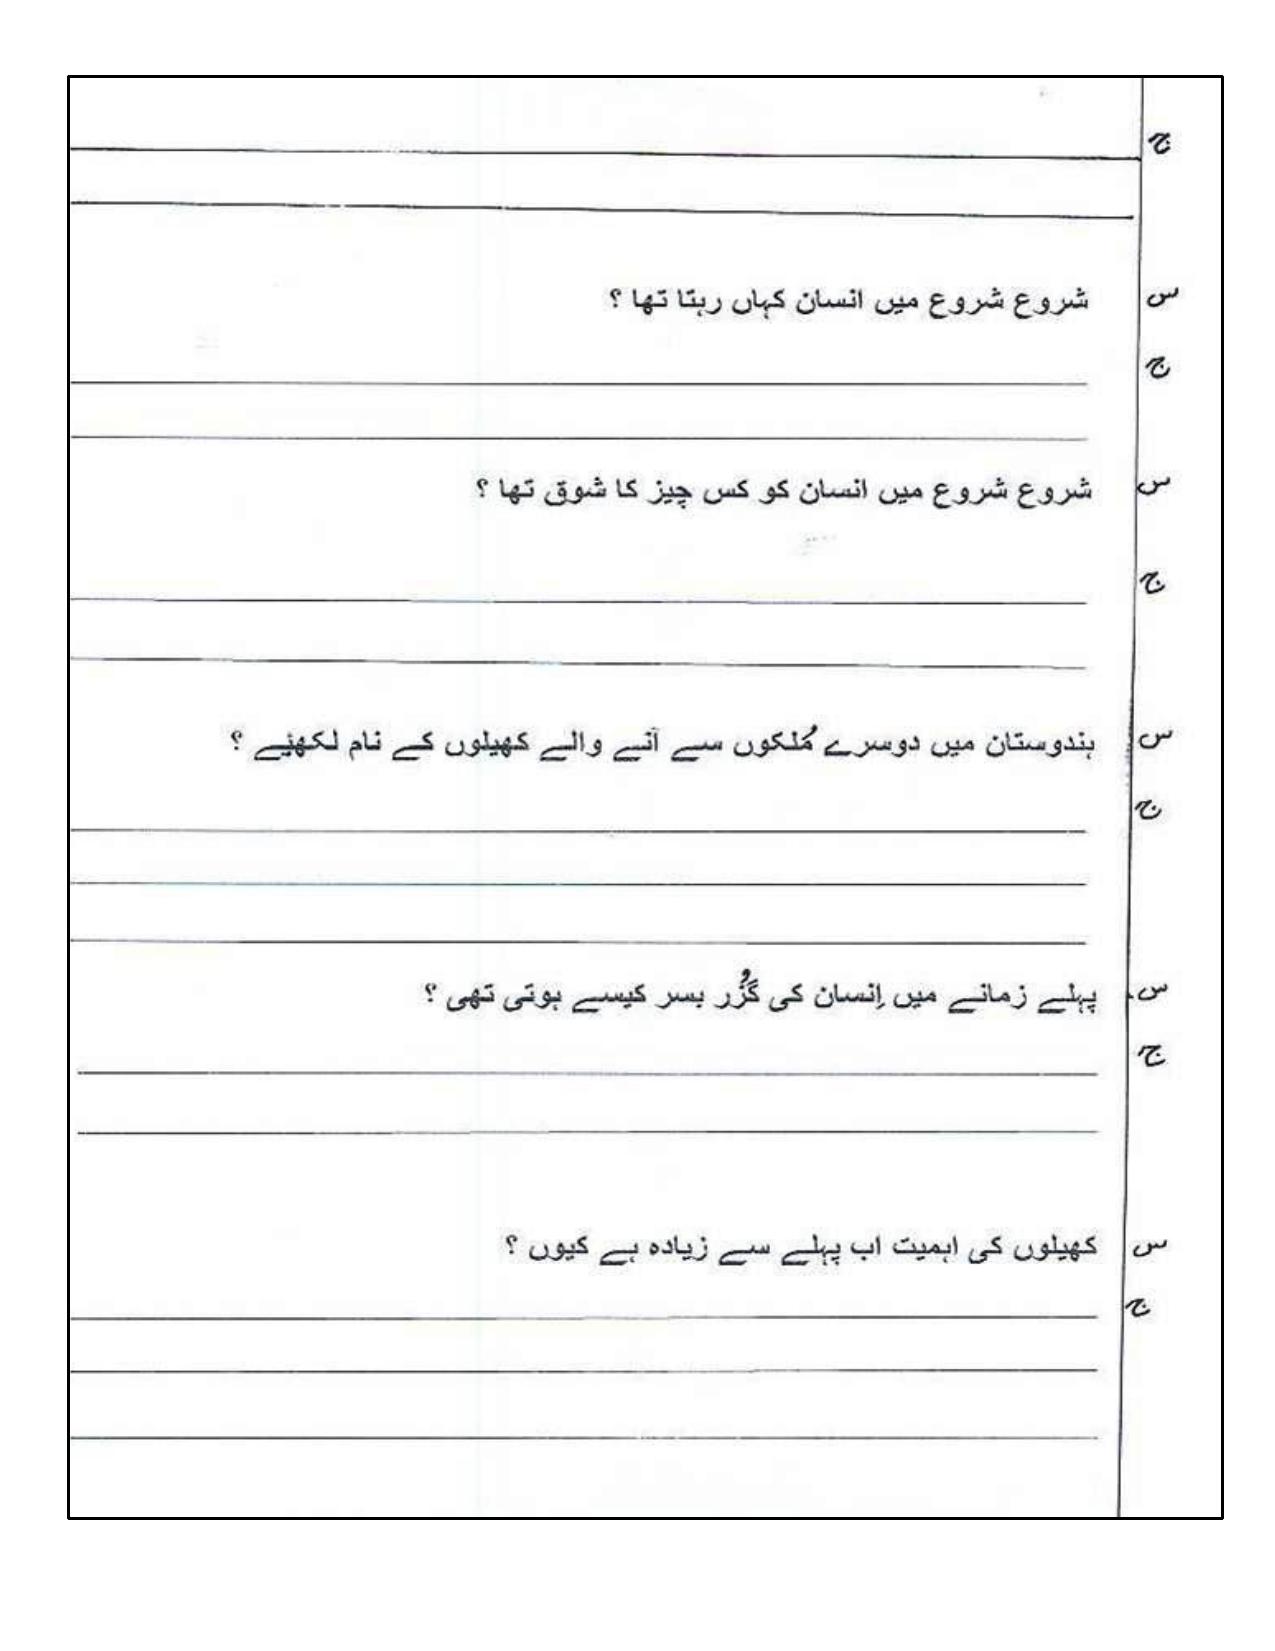 ج
س شروع شروع میں انسان کہاں رہتا تھا ؟
ج
س شروع شروع میں انسان کو کس چیز کا شوق تھا ؟
ج
س ہندوستان میں دوسرے مُلکوں سے آنے والے کھیلوں کے نام لکھئیے ؟
ج
س پہلے زمانے میں اِنسان کی گُزر بسر کیسے ہوتی تھی ؟
ج
س کھیلوں کی اہمیت اب پہلے سے زیادہ ہے کیوں ؟
ج